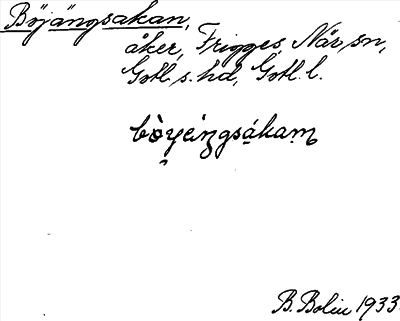 Böjängsakan,
åker, Frigges, När sn,
Gotl. s. hd, Gotl. l.
bòyéŋgsákam
B. Bolin 1933.